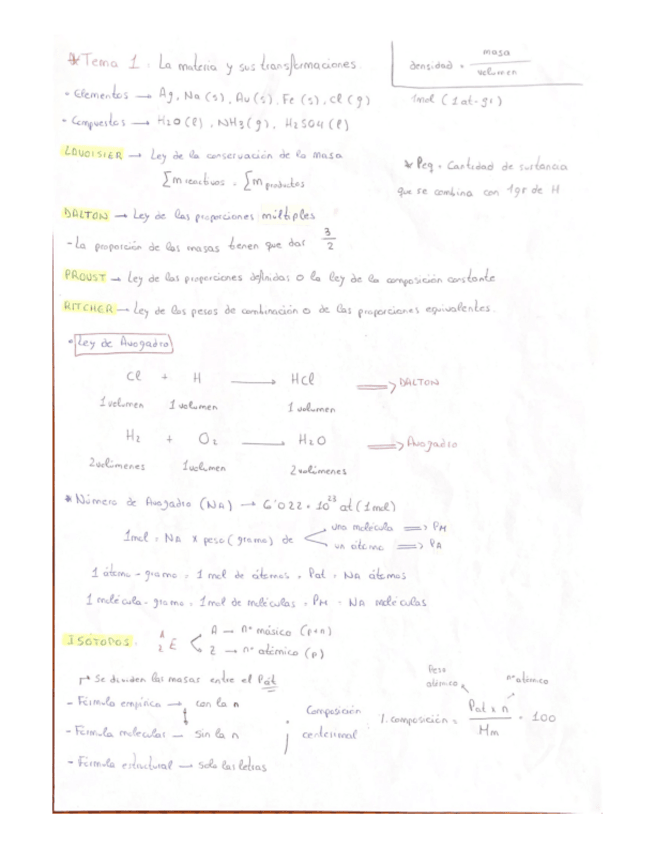 * Tema 1. La materia y sus transformaciones.
densidad = masa / volumen
- Elementos → Ag, Na (s), Au (s), Fe (s), Cl (g)
1mol (1 at-gr)
- Compuestos → H2O (l), NH3 (g), H2SO4 (l)
LAVOISIER → Ley de la conservación de la masa
Σ m reactivos = Σ m productos
* Peq = Cantidad de sustancia
que se combina con 1gr de H
DALTON → Ley de las proporciones múltiples
- La proporción de las masas tienen que dar 3/2
PROUST → Ley de las proporciones definidas o la ley de la composición constante
RITCHER → Ley de los pesos de combinación o de las proporciones equivalentes.
• Ley de Avogadro
Cl + H → HCl ⇒ DALTON
1 volumen 1 volumen 1 volumen
H2 + O2 → H2O ⇒ Avogadro
2 volúmenes 1 volumen 2 volúmenes
* Número de Avogadro (NA) → 6'022 · 10^23 at (1 mol)
1mol = NA x peso (gramo) de
una molécula ⇒ PM
un átomo ⇒ PA
1 átomo - gramo = 1 mol de átomos = Pat = NA átomos
1 molécula - gramo = 1 mol de moléculas = PM = NA moléculas
ISÓTOPOS: A Z E
A → nº másico (p+n)
Z → nº atómico (p)
Se dividen las masas entre el Pat
- Fórmula empírica → con la n
- Fórmula molecular → sin la n
- Fórmula estructural → solo las letras
Composición
centesimal
Peso
atómico
nº atómico
% composición = Pat x n / Mm · 100